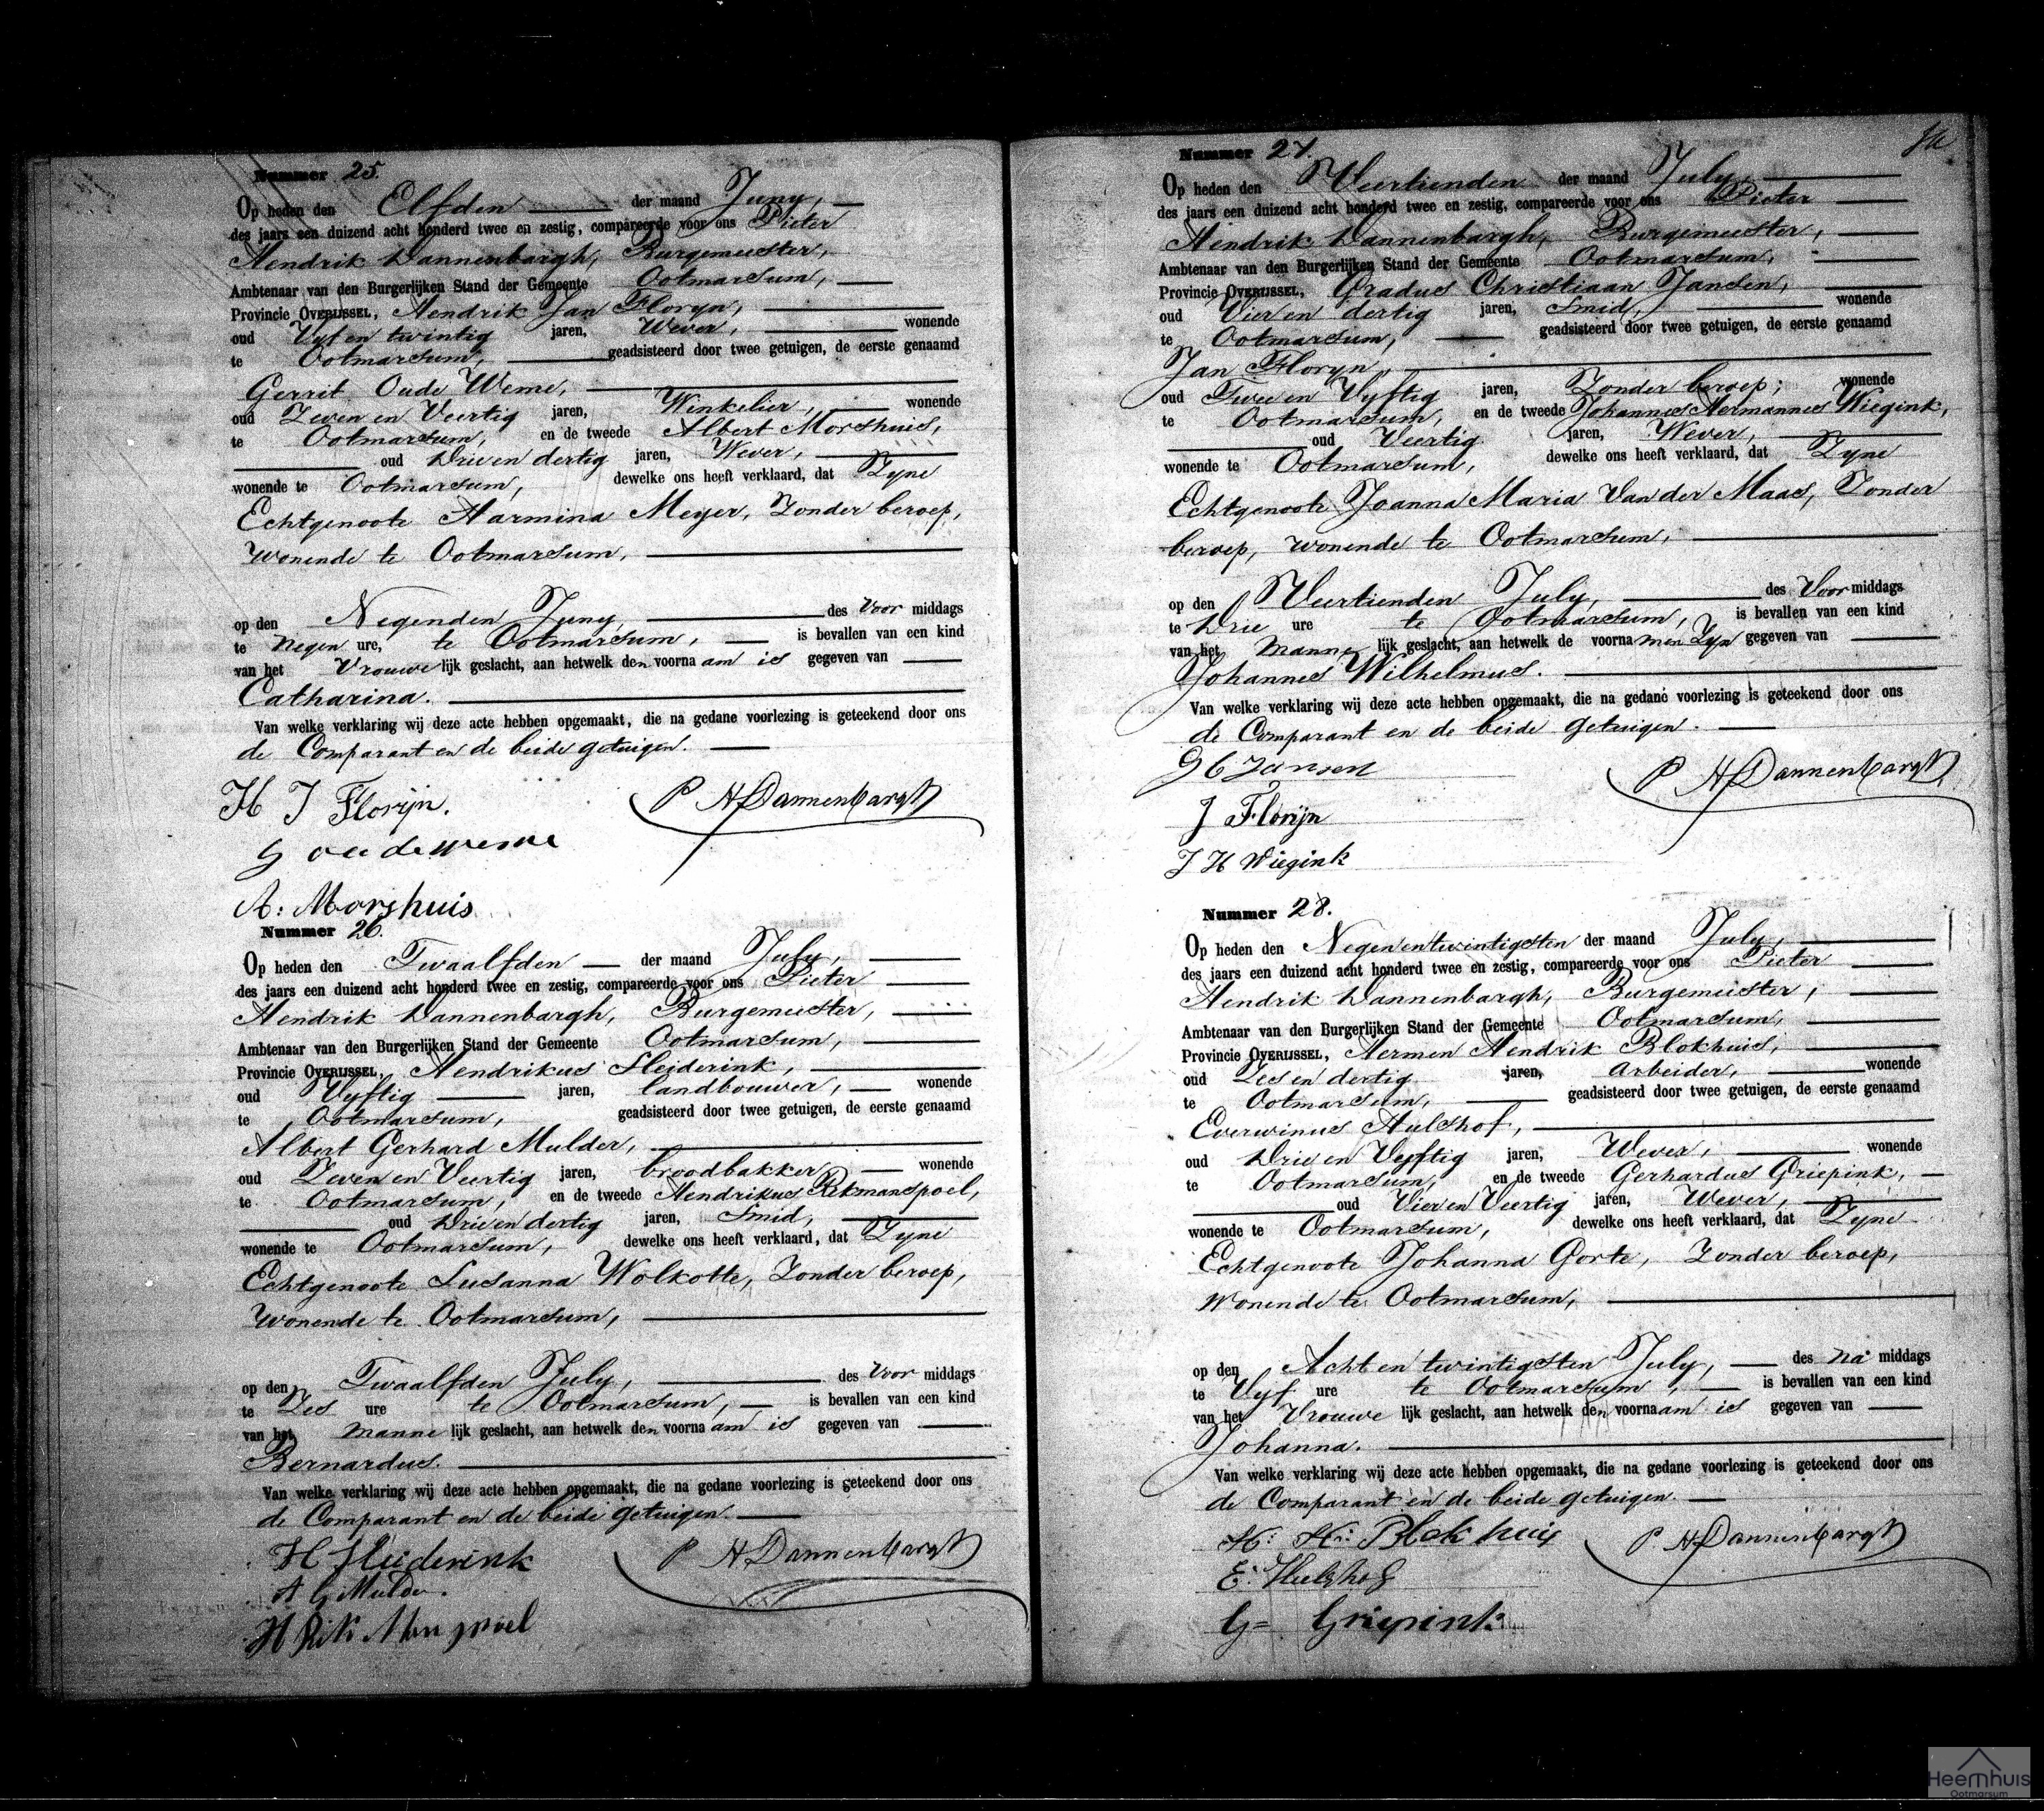 Nummer 25.
Op heden den Elfden der maand Juny,
des jaars een duizend acht honderd twee en zestig, compareerde voor ons Pieter
Hendrik Dannenbargh, Burgemeester,
Ambtenaar van den Burgerlijken Stand der Gemeente Ootmarsum,
Provincie OVERIJSSEL, Hendrik Jan Floryn,
oud Vyf en twintig jaren, Wever, wonende
te Ootmarsum, geadsisteerd door twee getuigen, de eerste genaamd
Gerrit Oude Weme,
oud Zeven en Veertig jaren, Winkelier, wonende
te Ootmarsum, en de tweede Albert Morshuis,
oud Drie en dertig jaren, Wever,
wonende te Ootmarsum, dewelke ons heeft verklaard, dat Zyne
Echtgenoote Harmina Meyer, Zonder beroep,
wonende te Ootmarsum,
op den Negenden Juny, des Voor middags
te Negen ure, te Ootmarsum, is bevallen van een kind
van het Vrouwe lijk geslacht, aan hetwelk den voorna am is gegeven van
Catharina.
Van welke verklaring wij deze acte hebben opgemaakt, die na gedane voorlezing is geteekend door ons
de Comparant en de beide getuigen.
H J Florijn.
P H Dannenbargh
G oudeweme
A: Morshuis
Nummer 26.
Op heden den Twaalfden der maand July,
des jaars een duizend acht honderd twee en zestig, compareerde voor ons Pieter
Hendrik Dannenbargh, Burgemeester,
Ambtenaar van den Burgerlijken Stand der Gemeente Ootmarsum,
Provincie OVERIJSSEL, Hendrikus Sleiderink,
oud Vyftig jaren, landbouwer, wonende
te Ootmarsum, geadsisteerd door twee getuigen, de eerste genaamd
Albert Gerhard Mulder,
oud Zeven en Veertig jaren, broodbakker, wonende
te Ootmarsum, en de tweede Hendrikus Rikmanspoel,
oud Drie en dertig jaren, Smid,
wonende te Ootmarsum, dewelke ons heeft verklaard, dat Zyne
Echtgenoote Susanna Wolkotte, Zonder beroep,
wonende te Ootmarsum,
op den Twaalfden July, des Voor middags
te Zes ure te Ootmarsum, is bevallen van een kind
van het Manne lijk geslacht, aan hetwelk den voorna am is gegeven van
Bernardus.
Van welke verklaring wij deze acte hebben opgemaakt, die na gedane voorlezing is geteekend door ons
de Comparant en de beide getuigen.
H Sleiderink
P H Dannenbargh
A G Mulder.
H Rik Man spoel
Nummer 27.
Op heden den Veertienden der maand July,
des jaars een duizend acht honderd twee en zestig, compareerde voor ons Pieter
Hendrik Dannenbargh, Burgemeester,
Ambtenaar van den Burgerlijken Stand der Gemeente Ootmarsum,
Provincie OVERIJSSEL, Gradus Christiaan Jansen,
oud Vier en dertig jaren, Smid, wonende
te Ootmarsum, geadsisteerd door twee getuigen, de eerste genaamd
Jan Floryn,
oud Twee en Vyftig jaren, Zonder beroep; wonende
te Ootmarsum, en de tweede Johannes Hermannes Wiegink,
oud Veertig jaren, Wever,
wonende te Ootmarsum, dewelke ons heeft verklaard, dat Zyne
Echtgenoote Joanna Maria Van der Maas, Zonder
beroep, wonende te Ootmarsum,
op den Veertienden July, des Voor middags
te Drie ure te Ootmarsum, is bevallen van een kind
van het Manne lijk geslacht, aan hetwelk de voorna men Zyn gegeven van
Johannes Wilhelmus.
Van welke verklaring wij deze acte hebben opgemaakt, die na gedane voorlezing is geteekend door ons
de Comparant en de beide getuigen.
G C Jansen
P H Dannenbargh
J Florijn
J H Wiegink
Nummer 28.
Op heden den Negenentwintigsten der maand July,
des jaars een duizend acht honderd twee en zestig, compareerde voor ons Pieter
Hendrik Dannenbargh, Burgemeester,
Ambtenaar van den Burgerlijken Stand der Gemeente Ootmarsum,
Provincie OVERIJSSEL, Hermen Hendrik Blokhuis,
oud Zes en dertig jaren, arbeider, wonende
te Ootmarsum, geadsisteerd door twee getuigen, de eerste genaamd
Everwinus Hulshof,
oud Drie en Vyftig jaren, Wever, wonende
te Ootmarsum, en de tweede Gerhardus Griepink,
oud Vier en Veertig jaren, Wever,
wonende te Ootmarsum, dewelke ons heeft verklaard, dat Zyne
Echtgenoote Johanna Gorte, Zonder beroep,
wonende te Ootmarsum,
op den Acht en twintigsten July, des Na middags
te Vyf ure te Ootmarsum, is bevallen van een kind
van het Vrouwe lijk geslacht, aan hetwelk den voorna am is gegeven van
Johanna.
Van welke verklaring wij deze acte hebben opgemaakt, die na gedane voorlezing is geteekend door ons
de Comparant en de beide getuigen.
H: H: Blokhuis
P H Dannenbargh
E: Hulshof
G= Griepink
Heemhuis
Ootmarsum